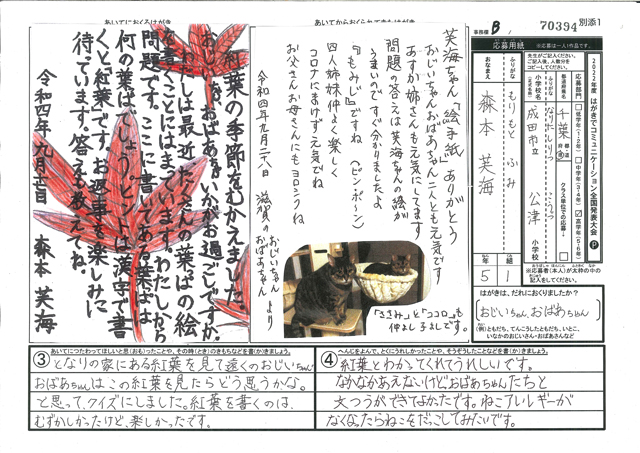 あいてにおくるはがき
紅葉の季節をむかえました。
おじいちゃん、おばあちゃん、いかがお過ごしですか。
わたしは最近、たくさんの葉っぱの絵
を書くことにはまっています。わたしから
問題です。ここに書いてある葉っぱは
何の葉っぱでしょう。ヒントは漢字で書
くと紅葉です。お返事を楽しみに
待っています。答えも教えてね。
令和四年九月
森本 芙海
あいてからおくられてきたはがき
芙海ちゃん「絵手紙」ありがとう
おじいちゃんおばあちゃん二人とも元気です
あすか姉さんも元気にしてます
問題の答えは芙海ちゃんの絵が
うまいのですぐ分かりましたよ
『もみじ』ですね(ピンポーン)
四人姉妹仲よく楽しく
コロナにまけず元気でね
お父さんお母さんにもヨロシクね
令和四年九月二八日
滋賀のおじいちゃんおばあちゃんより
「ささみ」と「ココロ」も
仲よし子よしです。
事務欄 B
70394
別添1
応募用紙
※応募は一人一作品です。
2022年度 はがきでコミュニケーション全国発表大会
応募部門
低学年(1・2年)
中学年(3・4年)
高学年(5・6年)
クラス単位での応募
都道府県名
千葉
小学校名
成田市立
公津
小学校
ふりがな
もりもと ふみ
おなまえ
森本 芙海
5年
1組
※応募者(本人)が太枠の中の
記入をしてください。
はがきは、だれにおくりましたか?
おじいちゃん、おばあちゃん
(例)ともだち、てんこうしたともだち、いとこ、
いなかのおじいさん・おばあさんなど
③
あいてにつたわってほしいと思(おも)ったことや、その時(とき)のきもちなどを書(か)きましょう。
となりの家にある紅葉を見て遠くのおじいちゃん
おばあちゃんはこの紅葉を見たらどう思うかな。
と思って、クイズにしました。紅葉を書くのは、
むずかしかったけど、楽しかったです。
④
へんじをよんで、とくにうれしかったことや、そうぞうしたことなどを書(か)きましょう。
紅葉とわかってくれてうれしいです。
なかなかあえないけどおばあちゃんたちと
文つうができてよかったです。ねこアレルギーが
なくなったらねこをだっこしてみたいです。